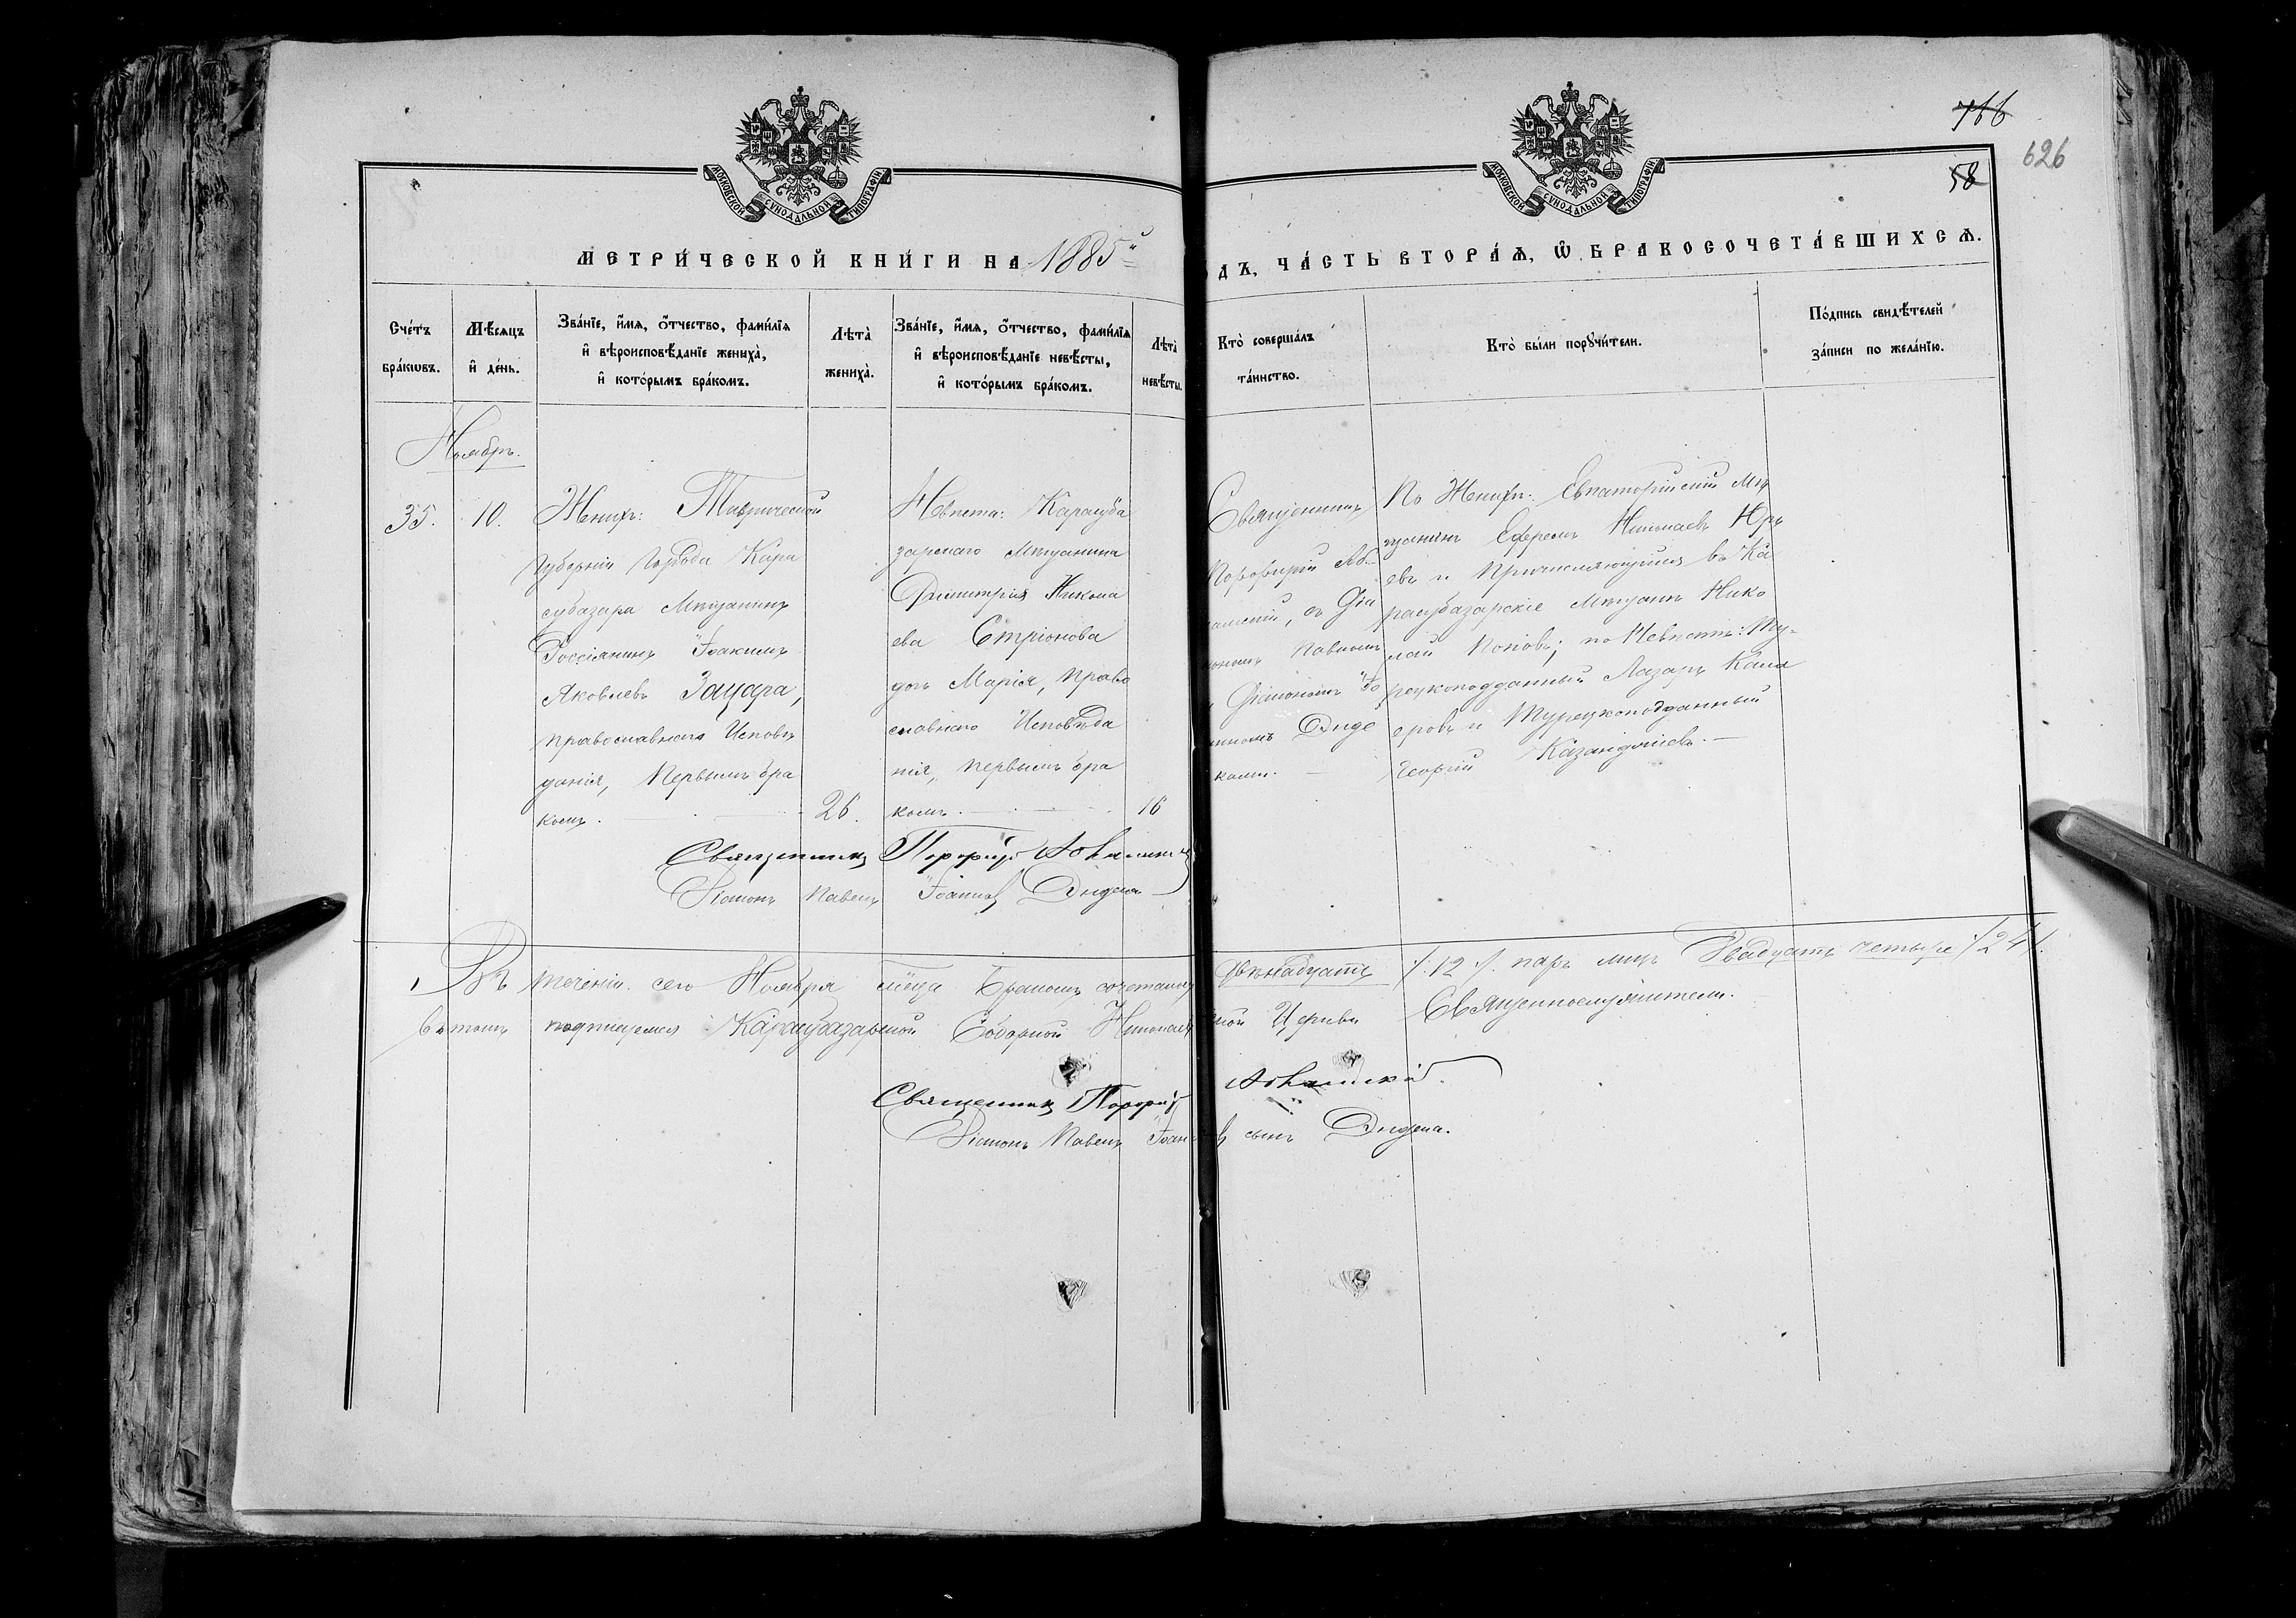 766
626
58
МОСКОВСКОЙ СѴНОДАЛЬНОЙ ТИПОГРАФІИ
МОСКОВСКОЙ СѴНОДАЛЬНОЙ ТИПОГРАФІИ
МЕТРИ́ЧЕСКОЙ КНИ́ГИ НА 1885й
ДЪ, ЧА́СТЬ ВТОРА́Ѧ, Ѿ БРАКОСОЧЕТА́ВШИХСѦ.
Сче́тъ
бра́кѡвъ.
Мѣ́сяцъ
и҆ де́нь.
Зва́нїе, и҆́мѧ, о҆́тчество, фами́лїѧ
и҆ вѣроисповѣ́данїе жениха̀,
и҆ кото́рымъ бра́комъ.
Лѣта̀
жениха̀.
Зва́нїе, и҆́мѧ, о҆́тчество, фами́лїѧ
и҆ вѣроисповѣ́данїе невѣ́сты,
и҆ кото́рымъ бра́комъ.
Лѣта̀
невѣ́сты.
Кто̀ соверша́лъ
та́инство.
Кто̀ бы́ли порꙋчи́тели.
По́дпись свидѣ́телей
за́писи по жела́нїю.
Ноябрь.
35.
10.
Женихъ: Таврической
губерніи города Кара
субазара Мѣщанинъ
Россіянинъ Іоакимъ
Яковлевъ Зацара,
православнаго Исповѣ
данія, первымъ бра
комъ.
26.
Невѣста: Карасуба
зарскаго Мѣщанина
Димитрія Никола
ева Стріонова
дочь Марія, право
славнаго Исповѣда
нія, первымъ бра
комъ.
16
Священникъ
Порфирій
съ Діа
кономъ Павломъ
Діакономъ Іо
анномъ Диде
комъ.
По Женихѣ: Евпаторійскій Мѣ
щанинъ Ефремъ Николаевъ Юрь
евъ и Причисляющійся въ Ка
расубазарскіе Мѣщане Нико
лай Поповъ; по Невѣстѣ: Ту-
рецкоподданный Лазарь Кала
еровъ и Турецкоподданный
Георгій Казанджіевъ.
Священникъ Порфирій
Діаконъ Павелъ Іоанновъ Диденко
Въ теченіи сего Ноября мѣсяца Бракомъ сочеталось двѣнадцать /:12:/ паръ лицъ Двадцать четыре /:24:/.
въ томъ подписуемся Карасубазарской Соборной Николаевской Церкви Священнослужители.
Священникъ Порфирій
Діаконъ Павелъ Іоанновъ сынъ